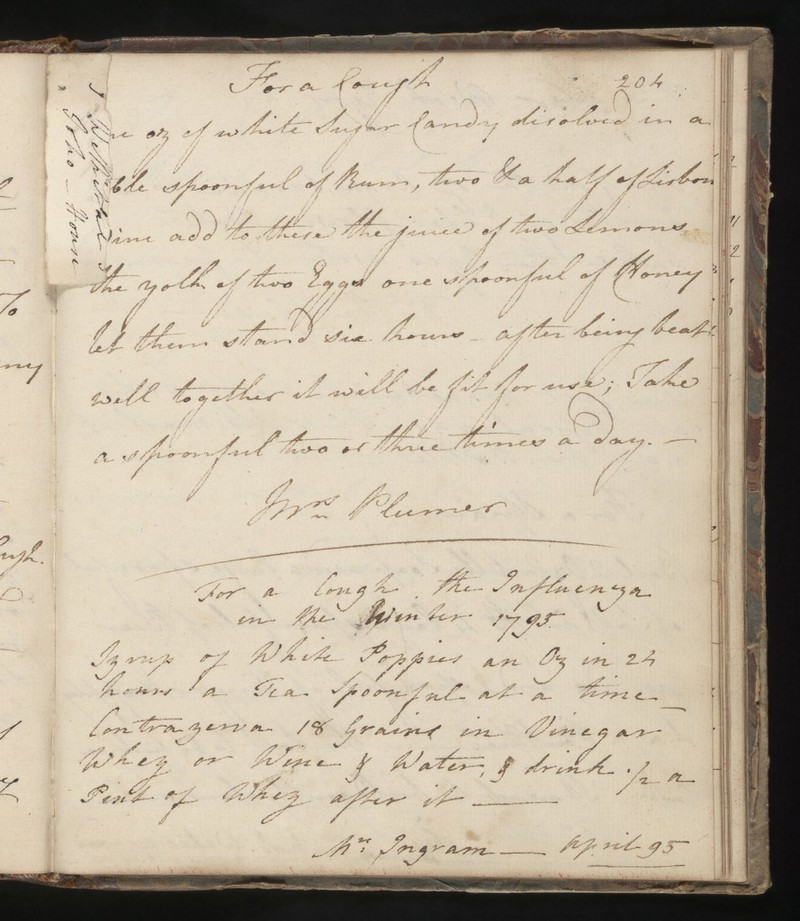 For a Cough 204
ne oz of white Sugar Candy disolved in a
ble spoonful of Rum, two & a half of Lisbon
ine add to these the juice of two Lemons
the yolk of two Eggs one spoonful of Honey
let them stand six hours - after being beat
well together it will be fit for use; Take
a spoonful two or three times a day. —
Mrs Plumer
For a Cough the Influenza
in the Winter 1795
Syrup of White Poppies an Oz in 24
hours a Tea Spoonful at a time —
Contrayerva 18 Grains in Vinegar
Whey or Wine & Water, & drink 1/2 a
Pint of Whey after it —
Mrs Ingram — April 95